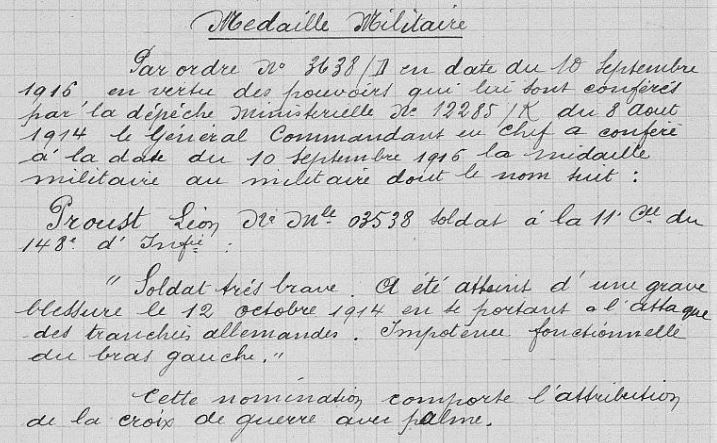 Medaille Militaire
Par ordre No 3638/D en date du 10 Septembre
1916 en vertu des pouvoirs qui lui sont conférés
par la dépêche Ministerielle No 12285/K du 8 Aout
1914 le Général Commandant en Chef a conféré
à la date du 10 Septembre 1916 la médaille
militaire au militaire dont le nom suit :
Proust Léon No Mle 03538 soldat à la 11e Cie du
148e d'Infie :
" Soldat trés brave. A été atteint d'une grave
blessure le 12 octobre 1914 en se portant a l'attaque
des tranchées allemandes. Impotence fonctionnelle
du bras gauche."
Cette nomination comporte l'attribution
de la croix de guerre avec palme.